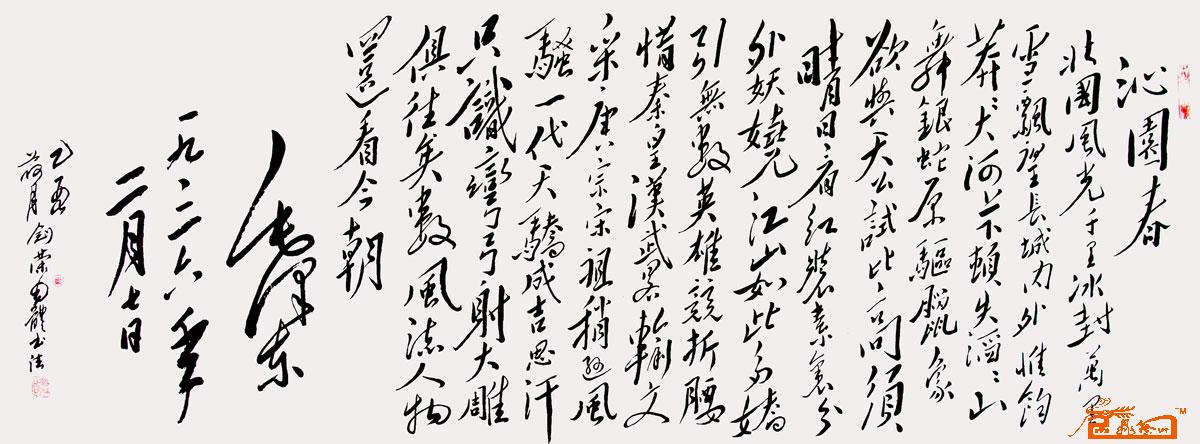 沁園春
北國風光千里冰封萬里
雪飄望長城内外惟餘
莽々大河上下頓失滔々山
舞銀蛇原驅臘象
欲與天公試比高須
晴日看紅裝素裹分
外妖嬈江山如此多嬌
引無數英雄競折腰
惜秦皇漢武略輸文
采唐宗宋祖稍遜風
騷一代天驕成吉思汗
只識彎弓射大雕
俱往矣數風流人物
還看今朝
毛澤東
一九三六年
二月七日
乙酉
月剑荣毛體书法